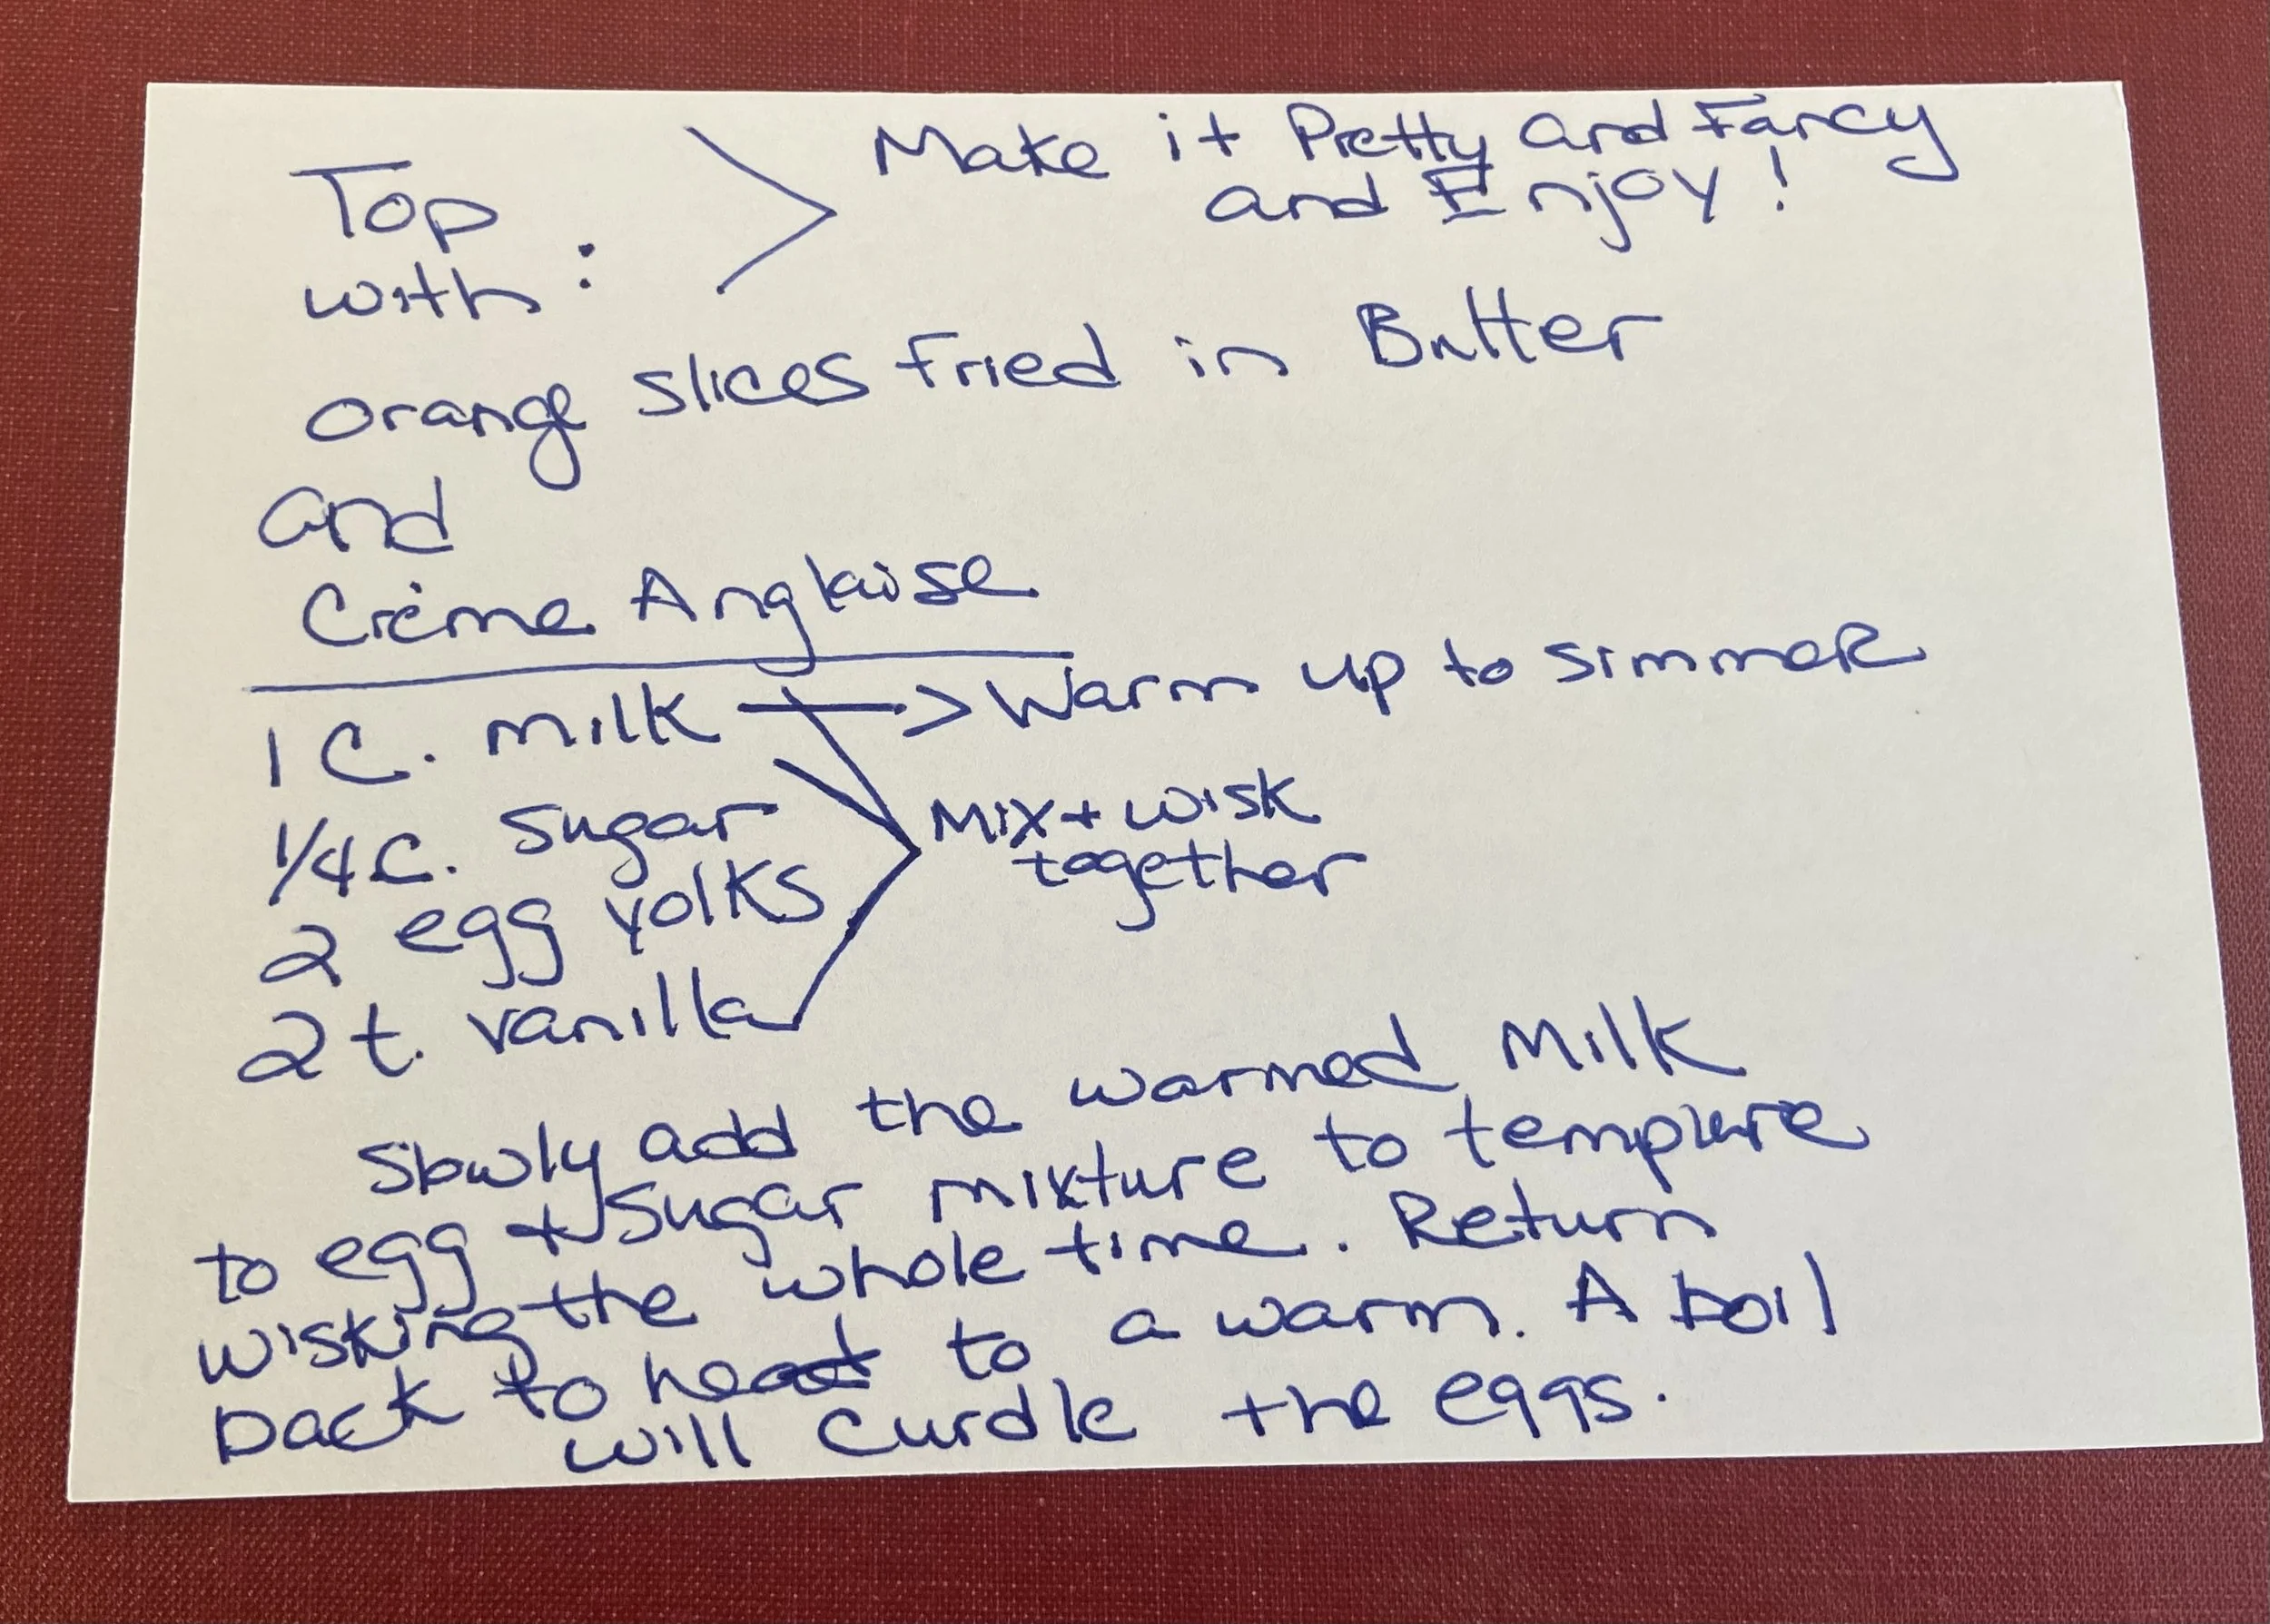 Top
with :
Make it Pretty and Fancy
and Enjoy!
orange slices fried in Butter
and
Crème Anglaise
1 C. milk -> Warm up to simmer
1/4 C. sugar
2 egg yolks
2 t. vanilla
Mix + wisk
together
Slowly add the warmed Milk
to egg + sugar mixture to tempure
wisking the whole time. Return
back to heat to a warm. A boil
will curdle the eggs.